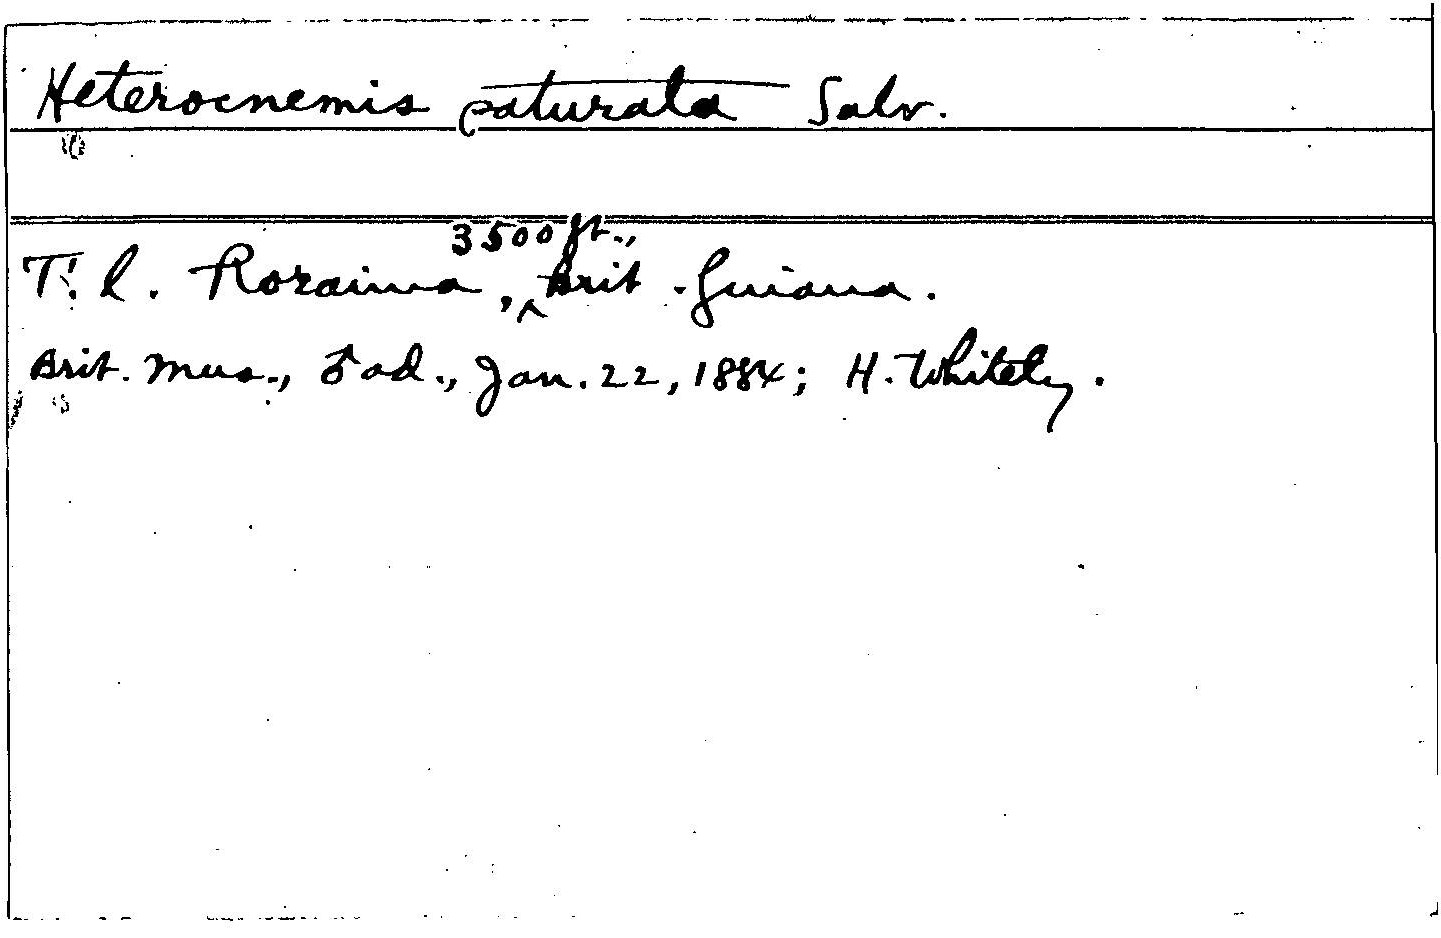 Heterocnemis saturata Salv.
T. l. Roraima, 3500 ft., Brit. Guiana.
Brit. Mus., ♂ ad., Jan. 22, 1884; H. Whitely.